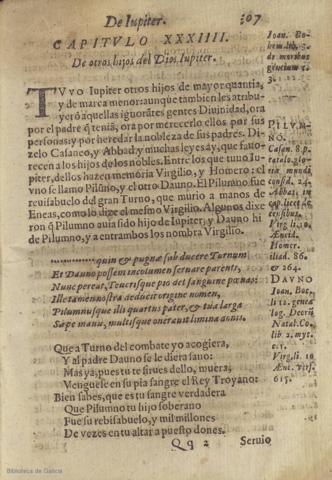 De Iupiter. 307
CAPITVLO XXXIIII.
De otros hijos del Dios Iupiter.
TVVO Iupiter otros hijos de mayor quantia,
y de marca menor: aunque tambien les atribu-
yerō a aquellas ignorātes gentes Diuinidad, ora
por el padre q̄ teniā, ora por merecerlo ellos por sus
personas: y por heredar la nobleza de sus padres. Di-
zelo Casaneo, y Abbad: y muchas leyes ay, que fauo-
recen a los hijos de los nobles. Entre los que tuuo Iu-
piter, dellos hazen memoria Virgilio, y Homero: el
vno se llamo Pilūno, y el otro Dauno. El Pilumno fue
reuisabuelo del gran Turno, que murio a manos de
Eneas, como lo dize el mesmo Virgilio. Algunos dixe
ron q̄ Pilumno auia sido hijo de Iupiter, y Dauno hi
de Pilumno, y a entrambos los nombra Virgilio.
quin & pugnæ sub ducere Turnum
Et Dauno possem incolumem seruare parenti,
Nunc pereat, Teucrisque pio det sanguine pœnas:
Ille tamen nostra deducit origine nomen,
Pilumnusque illi quartus pater, & tua larga
Sæpe manu, multisque onerauit limina donis.
Que a Turno del combate yo acogiera,
Y al padre Dauno se le diera sano:
Mas ya, pues tu te sirues dello, muera,
Venguese en su pia sangre el Rey Troyano:
Bien sabes, que es tu sangre verdadera
Que Pilumno tu hijo soberano
Fue su rebisabuelo, y mil millones
De vezes en tu altar a puesto dones.
Qq 2 Seruio
Ioan. Bo-
hem. lib. 3.
de moribus
gentium c.
3.
PILVM-
NO.
Casan. 8. p.
catalo. glo-
riæ mundi,
consid. 24.
Abbas, in
cap.
censibus.
Virg. li. 10.
Æneid.
Homer.
iliad. 86.
& 264.
DAVNO
Ioan. Boc.
li. 12. genea
log. Deorū
Natal. Co.
lib. 2. myt.
c. 1.
Virg. li. 10
Æne. vers.
615.
Biblioteca de Galicia